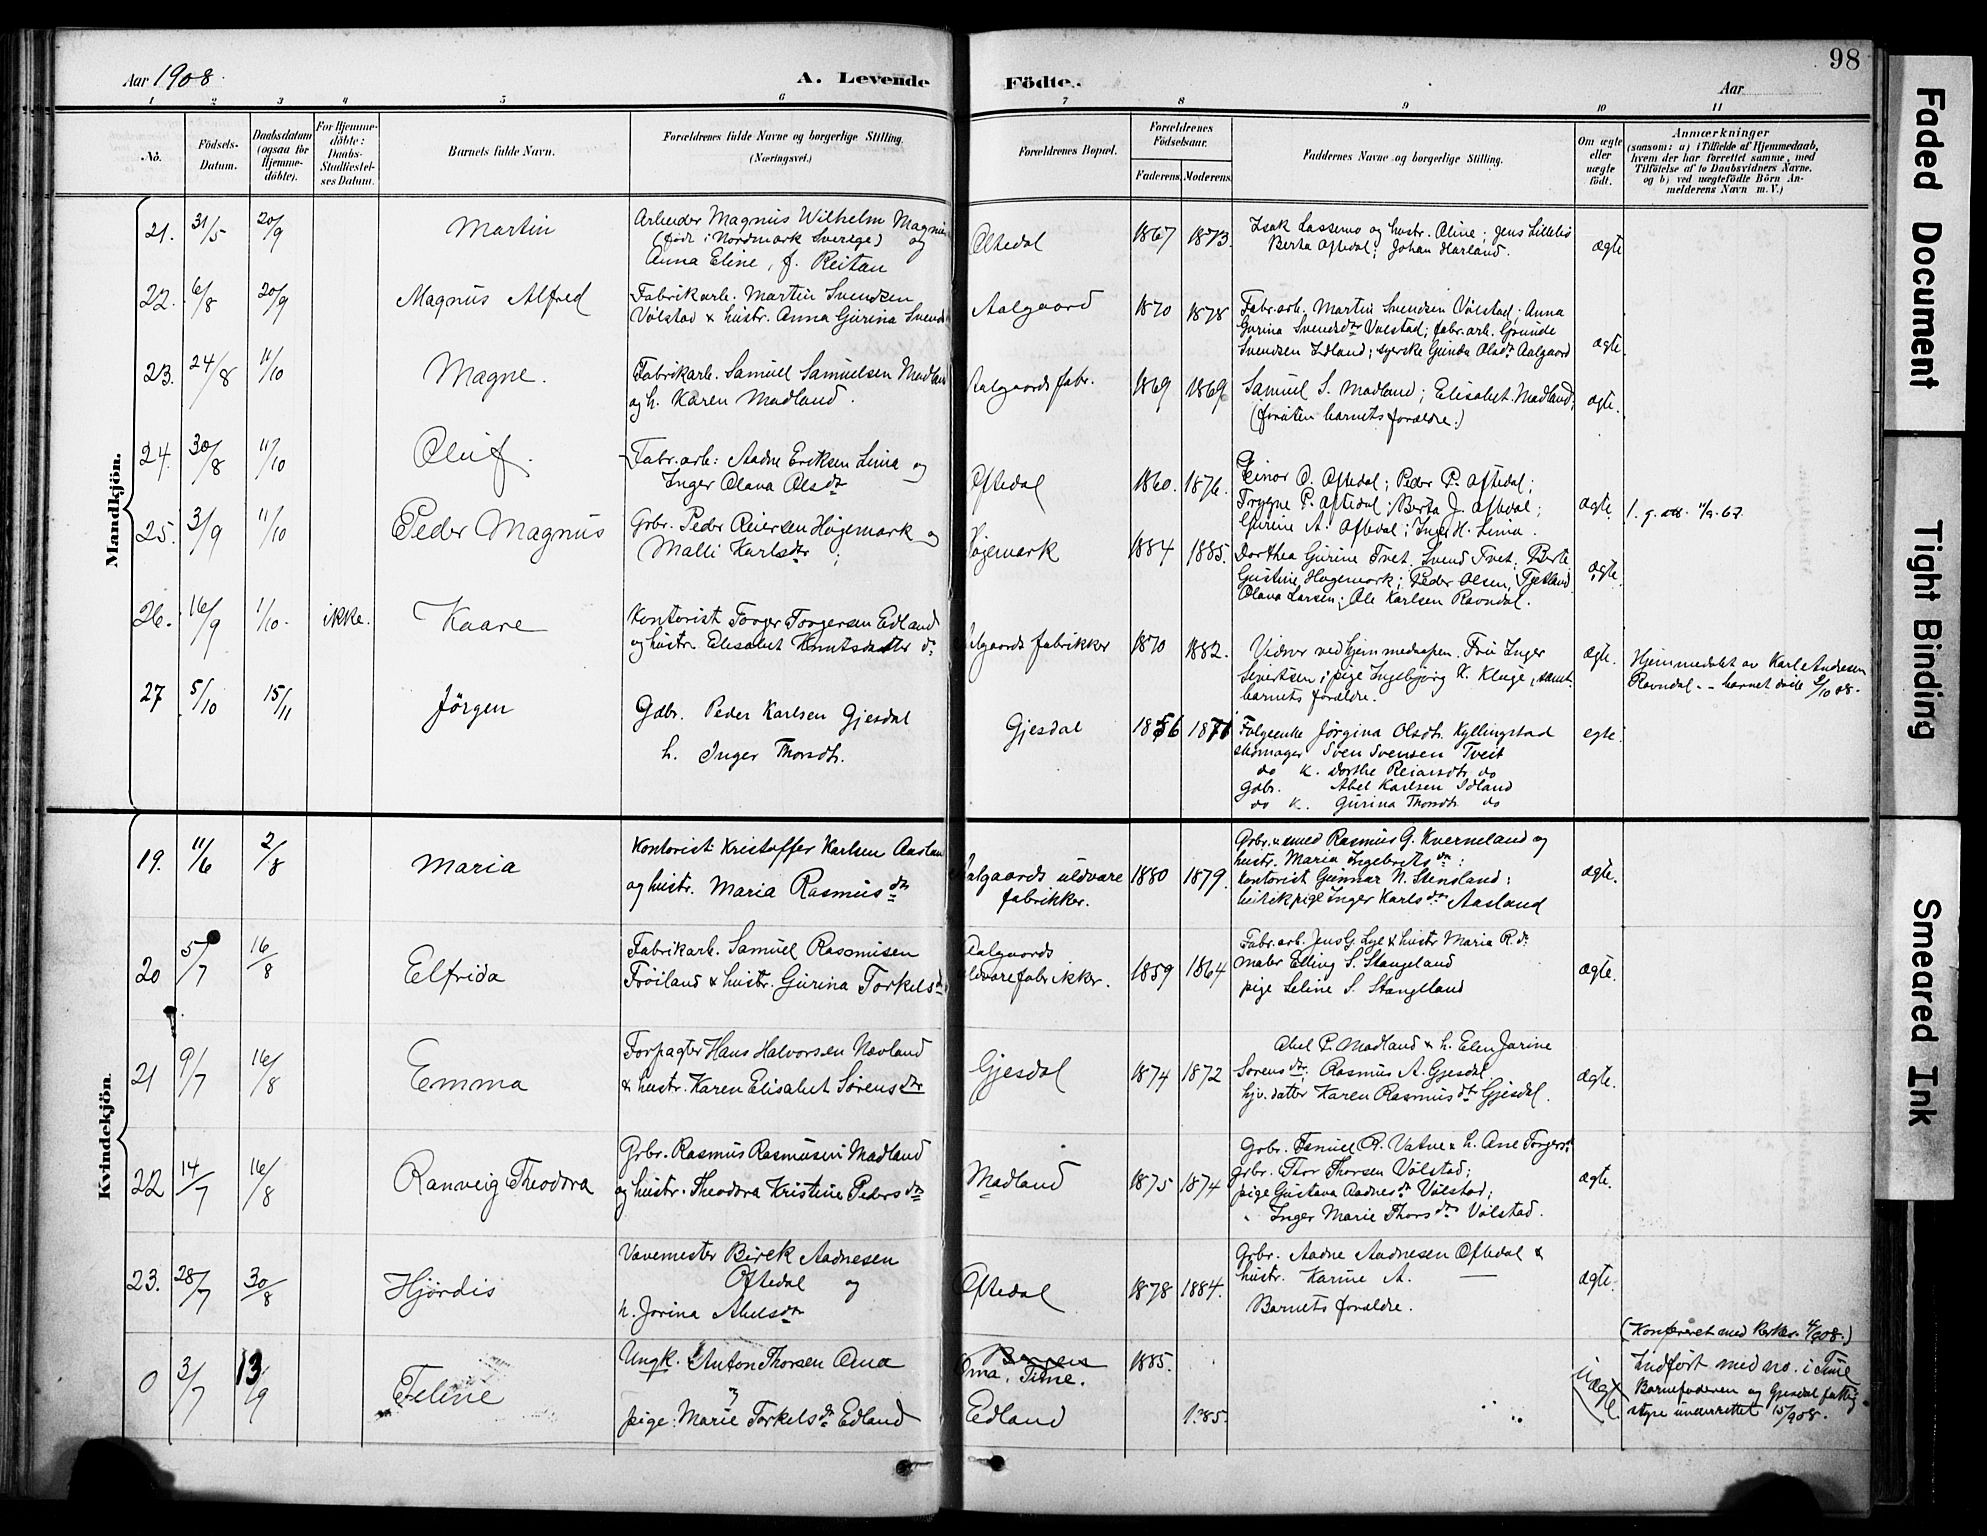 98
Aar 1908.
A. Levende
Födte.
Aar
1 2 3 4 5 6 7 8 9 10 11
No.
Födsels-
Datum.
Daabsdatum
(ogsaa for
Hjemme-
döbte).
For Hjemme-
döbte:
Daabs-
Stadfæstel-
ses Datum.
Barnets fulde Navn.
Forældrenes fulde Navne og borgerlige Stilling.
(Næringsvei.)
Forældrenes Bopæl.
Forældrenes
Födselsaar.
Faderens.
Moderens.
Faddernes Navne og borgerlige Stilling.
Om ægte
eller
uægte
födt.
Anmærkninger
(saasom: a) i Tilfælde af Hjemmedaab,
hvem der har forrettet samme, med
Tilföielse af to Daabsvidners Navne,
og b) ved uægtefödte Börn An-
melderens Navn m. V.)
Mandkjön.
21. 31/5 20/9 Martin
Arbeider Magnus Wilhelm
(født i Nordmark Sverege) og
Anna Eline, f. Reitan
Oltedal
1867 1873.
Isak Lassemo og hustr. Oline; Jens
Berta Oftedal; Johan Harland.
ægte
22. 6/8 20/9 Magnus Alfred
Fabrikarb. Martin Svendsen
Vølstad & hustr. Anna Gurina
Aalgaard
1870 1878
Fabr.arb. Martin Svendsen Vølstad; Anna
Gurina Svendsdtr Vølstad; fabr.arb. Gunde
Svendsen Edland; syerske Gunda Olsdtr Aalgaard
ægte.
23. 24/8 11/10 Magne.
Fabrikarb. Samuel Samuelsen Madland
og h. Karen Madland.
Aalgaards fabr.
1869 1869
Samuel S. Madland; Elisabet Madland;
(foruten barnets forældre.)
ægte.
24. 30/8 11/10 Oluf.
Fabr.arb: Aadne Eriksen Lima og
Inger Olava Olsdtr
Oftedal
1860. 1876.
Einar O. Oftedal; Peder P. Oftedal;
Trygve P. Oftedal; Berta J. Oftedal;
Gurine A. Oftedal; Inger H. Lima.
ægte.
25. 3/9 11/10 Peder Magnus
Grbr. Peder Reiersen Høgemark og
Malli Karlsdtr
Høgemark
1884 1885.
Dorthea Gurine Tvet, Svend Tvet; Berte
Gustine Høgemark; Peder Olsen Tjetland
Olava Larsen; Ole Karlsen Ravndal.
ægte.
26. 16/9 1/10. ikke. Kaare
Kontorist Torger Torgersen Edland
og hustr. Elisabet Knutsdatter
Aalgaards fabrikker
1870 1882.
Vidner ved hjemmedaapen. Fru Inger
Sivertsen; pige Ingebjørg K. Kluge, samt
barnets forældre.
ægte.
Hjemmedøbt av Karl Andresen
Ravndal. - barnet døde 2/10 08.
27 5/10 15/11 Jörgen
Gdbr. Peder Karlsen Gjesdal
h. Inger Thorsdtr.
Gjesdal
1856 1871
Jørgina Olsdtr. Kyllingstad
skomager Sven Svensen Tveit
do K. Dorthe Reiarsdtr. do
gdbr. Abel Karlsen Idland
do K. Gurina Thorsdtr. do
egte.
Kvindekjön.
19. 11/6 2/8 Maria
Kontorist Kristoffer Karlsen Aasland
og hustr. Maria Rasmusdtr
Aalgaards uldvare
fabrikker.
1880 1879.
Grbr. & smed Rasmus G. Kverneland og
hustr. Maria Ingebretsdtr;
kontorist Gunnar N. Stensland;
Inger Karlsdtr Aasland
ægte.
20 5/7 16/8 Elfrida
Fabrikarb. Samuel Rasmusen
Frøiland & hustr. Gurina Torkelsdtr
Aalgaards
uldvarefabrikker.
1859 1864
Fabr.arb. Jens G. Lye & hustr Maria R.dtr
maler Elling S. Stangeland
pige Seline S. Stangeland
ægte.
21 9/7 16/8 Emma
Forpagter Hans Halvorsen Nævland
& hustr. Karen Elisabet Sørensdtr
Gjesdal
1874 1872
Abel P. Madland & h. Elen Jarine
Sørensdtr; Rasmus A. Gjesdal
hjv. datter Karen Rasmusdtr Gjesdal.
ægte.
22 14/7 16/8 Ranveig Theodora
Grbr. Rasmus Rasmusen Madland
og hustr. Theodora Kristine Pedersdtr
Madland
1875 1874
Grbr. R. Vatne & h. Ane Torgersdtr
grbr. Thor Thorsen Vølstad;
pige Gustava Aadnesdtr Vølstad;
Inger Marie Thorsdtr Vølstad.
ægte.
23. 28/7 30/8 Hjørdis
Vævemester Birek Aadnesen
Oftedal og
h. Jorina Abelsdtr
Oftedal
1878 1884.
Grbr. Aadne Aadnesen Oftedal &
hustr. Karine A. —
Barnets forældre.
ægte.
0 3/7 13/9 Teline
Ungk. Anton Thorsen Oma
pige: Marie Torkelsdtr Edland
Bergen
Oma, Time.
Edland
1885.
1885
uægte.
(Konfereret med
Indført med no. i Time
Barnefaderen og Gjesdal fattig-
styre underrettet 15/9 08.
Faded Document
Tight Binding
Smeared Ink